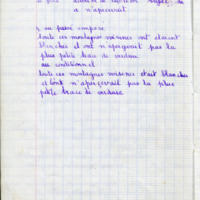 a n'apercevait
au passé composé
toute ces montagnes voisines ont étaient
blanches et ont n'aperçevait pas la
plus petite trace de verdure
au conditionnel
toute ces montagnes voisence était blanches
et l'ont n'aperçevait pas la plus
petite trace de verdure.